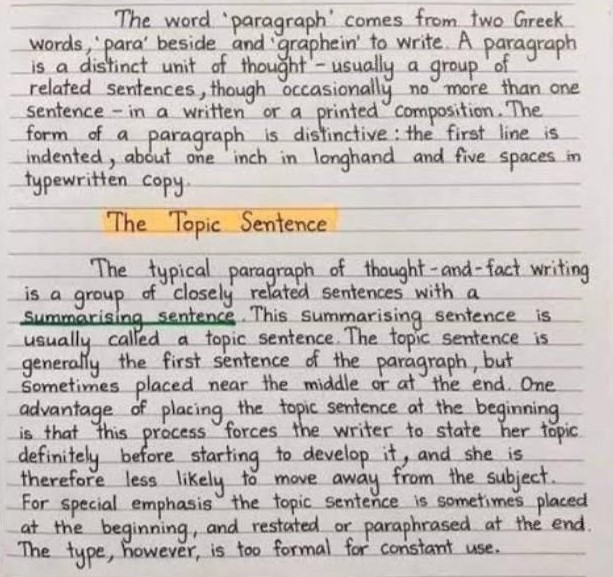 The word 'paragraph' comes from two Greek
words, 'para' beside and 'graphein' to write. A paragraph
is a distinct unit of thought - usually a group of
related sentences, though occasionally no more than one
sentence - in a written or a printed composition. The
form of a paragraph is distinctive : the first line is
indented, about one inch in longhand and five spaces in
typewritten copy.
The Topic Sentence
The typical paragraph of thought-and-fact writing
is a group of closely related sentences with a
summarising sentence. This summarising sentence is
usually called a topic sentence. The topic sentence is
generally the first sentence of the paragraph, but
sometimes placed near the middle or at the end. One
advantage of placing the topic sentence at the beginning
is that this process forces the writer to state her topic
definitely before starting to develop it, and she is
therefore less likely to move away from the subject.
For special emphasis the topic sentence is sometimes placed
at the beginning, and restated or paraphrased at the end.
The type, however, is too formal for constant use.